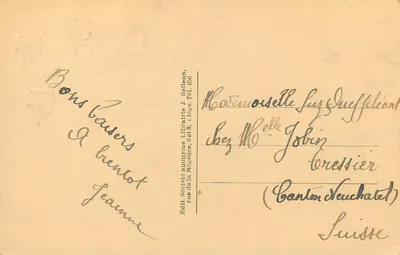 Bons Baisers
A bientot
Jeanne
Edit. Société anonyme Librairie J. Bellens,
rue de la Régence, 6 et 8, Liége. Tél. 656
Mademoiselle Suz
chez Melle Jobin
Cressier
(Canton Neuchatel)
Suisse